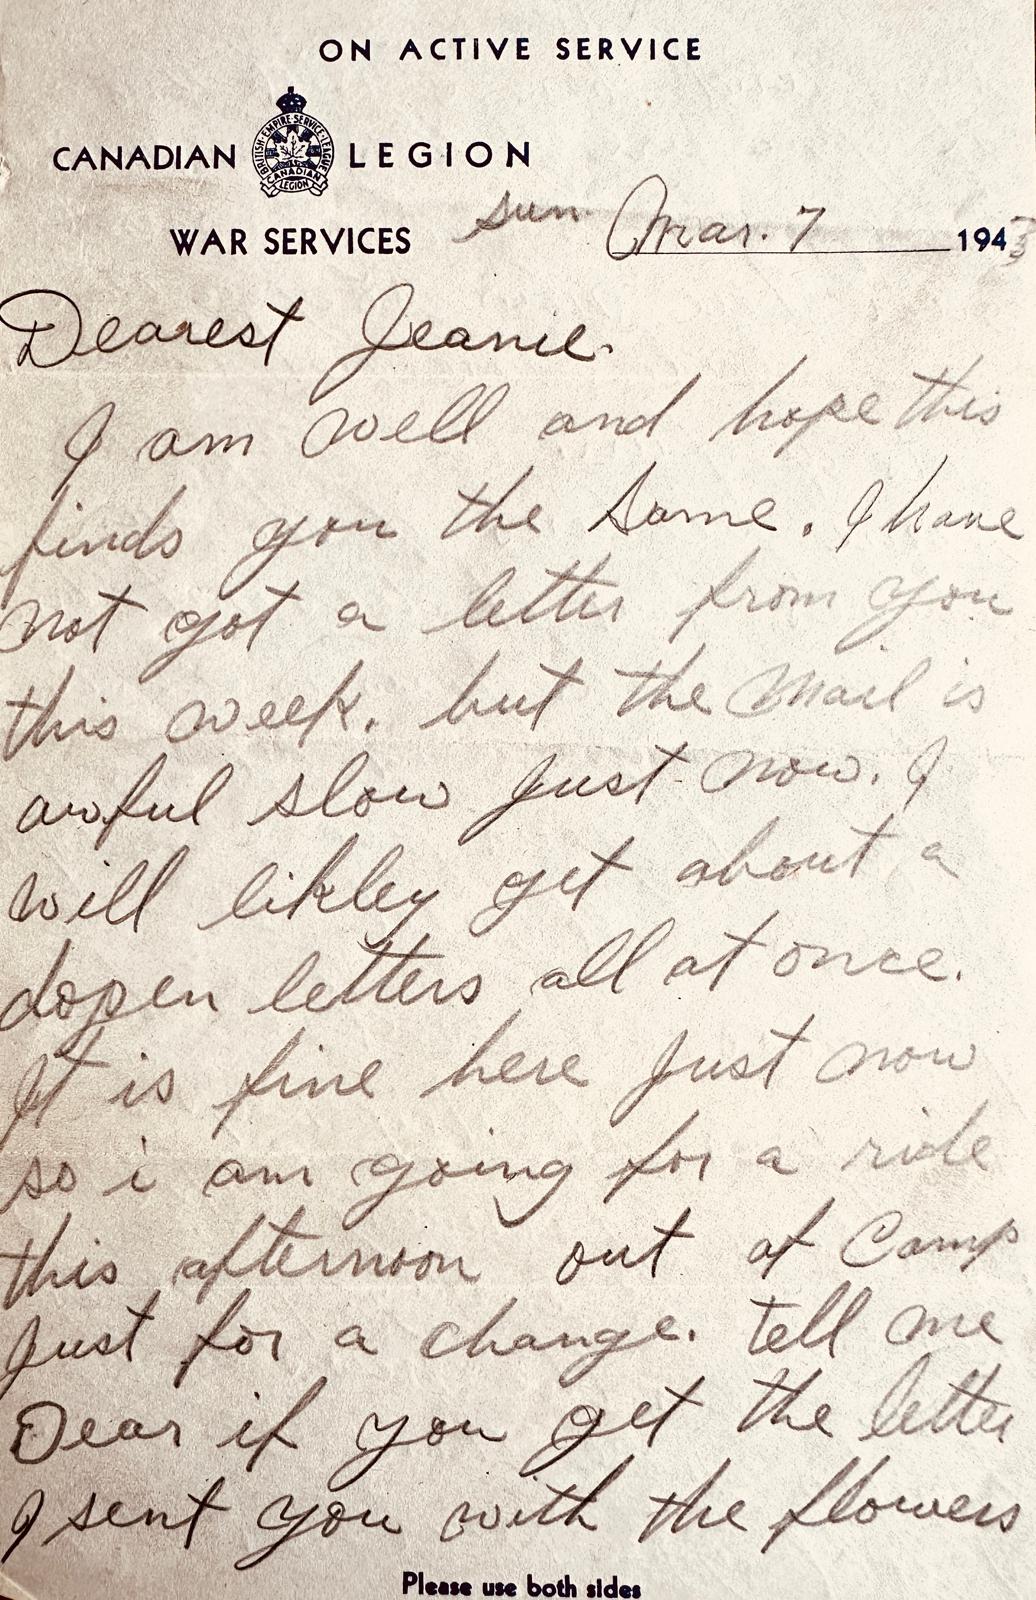 ON ACTIVE SERVICE
CANADIAN LEGION
BRITISH·EMPIRE·SERVICE·LEAGUE
CANADIAN
LEGION
WAR SERVICES
sun Mar. 7 1943
Dearest Jeanie.
I am well and hope this
finds you the same. I have
not got a letter from you
this week. but the mail is
awful slow just now. I
will likley get about a
dopen letters all at once.
It is fine here just now
so i am going for a ride
this afternoon out of Camp
just for a change. tell me
Dear if you get the letter
I sent you with the flowers
Please use both sides